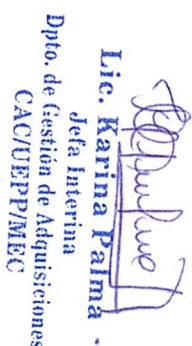 Lic. Karina Palma -
Jefa Interina
Dpto. de Gestión de Adquisiciones
CAC/UEPP/MEC